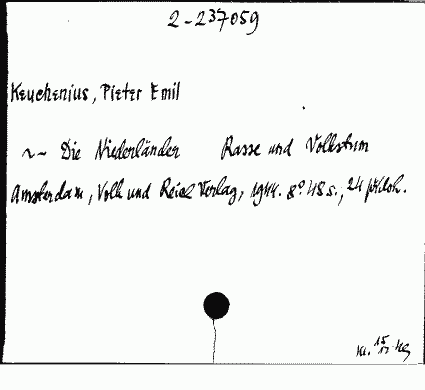 2-237059
Keuchenius, Pieter Emil
~~ Die Niederländer Rasse und Volkstum
Amsterdam, Volk und Reich Verlag, 1944. 8° 48 s., 24